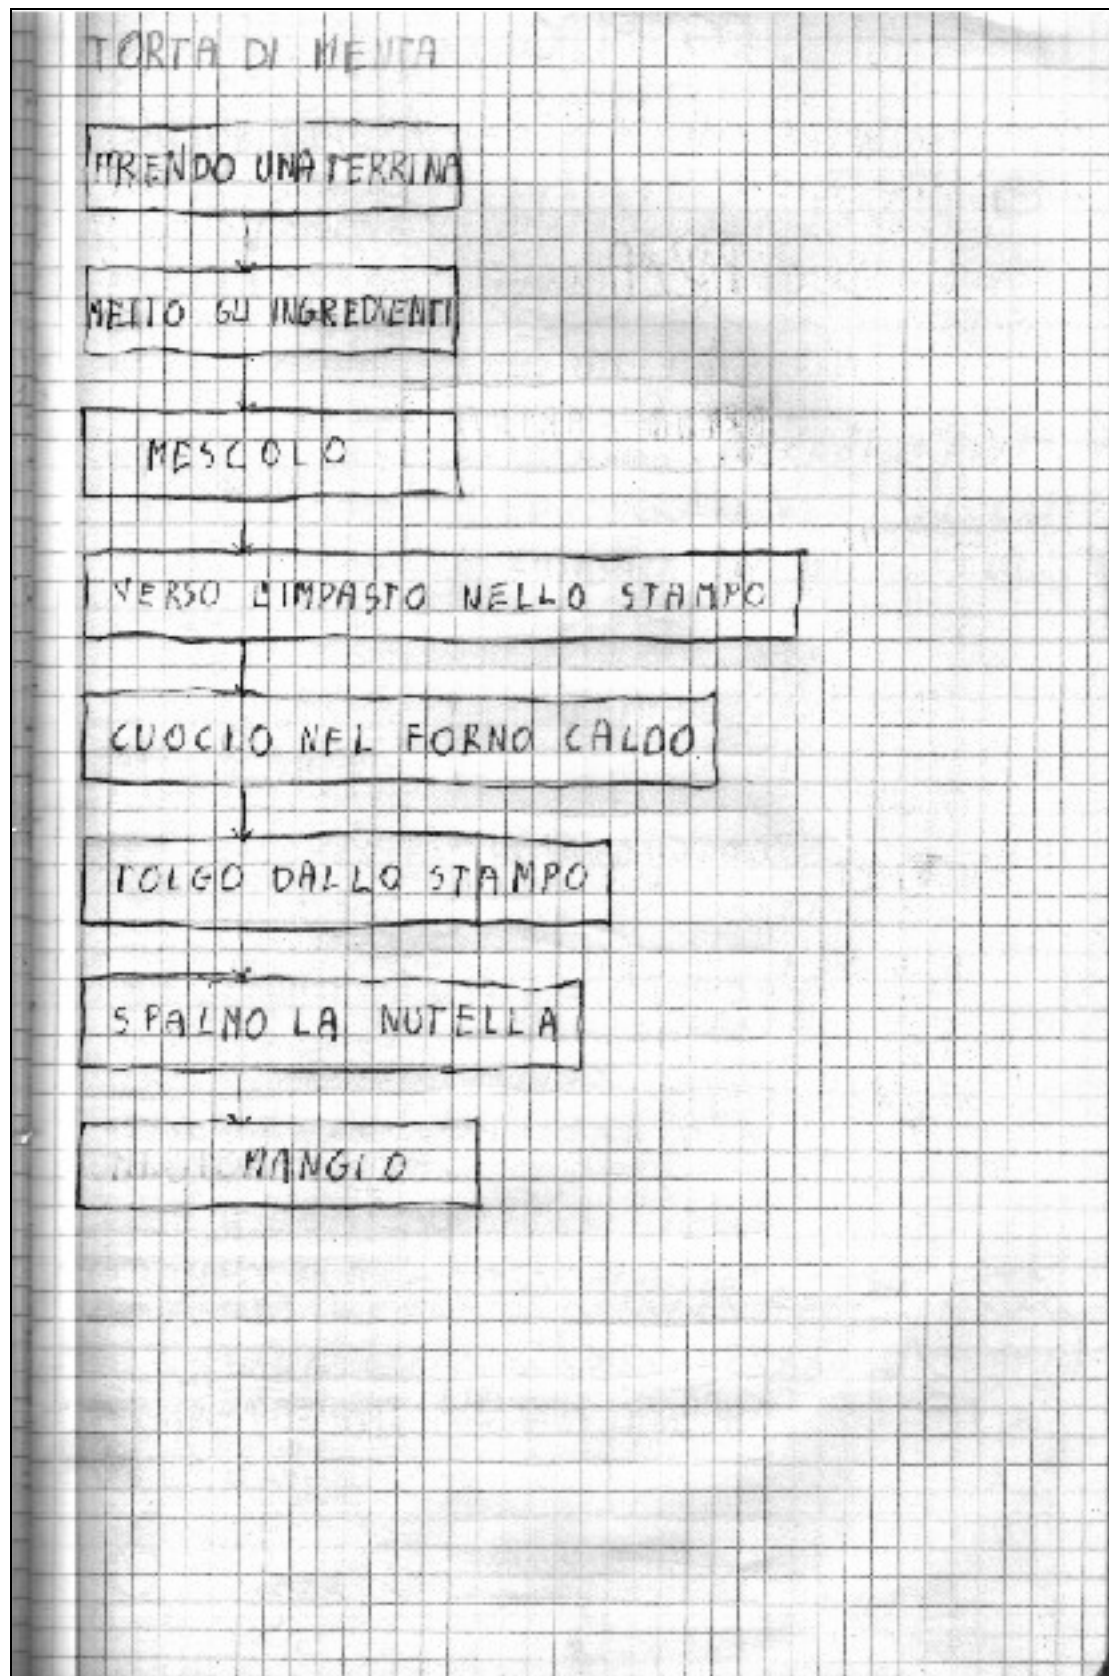 TORTA DI MENTA
PRENDO UNA TERRINA
METTO GLI INGREDIENTI
MESCOLO
VERSO L'IMPASTO NELLO STAMPO
CUOCIO NEL FORNO CALDO
TOLGO DALLO STAMPO
SPALMO LA NUTELLA
MANGIO